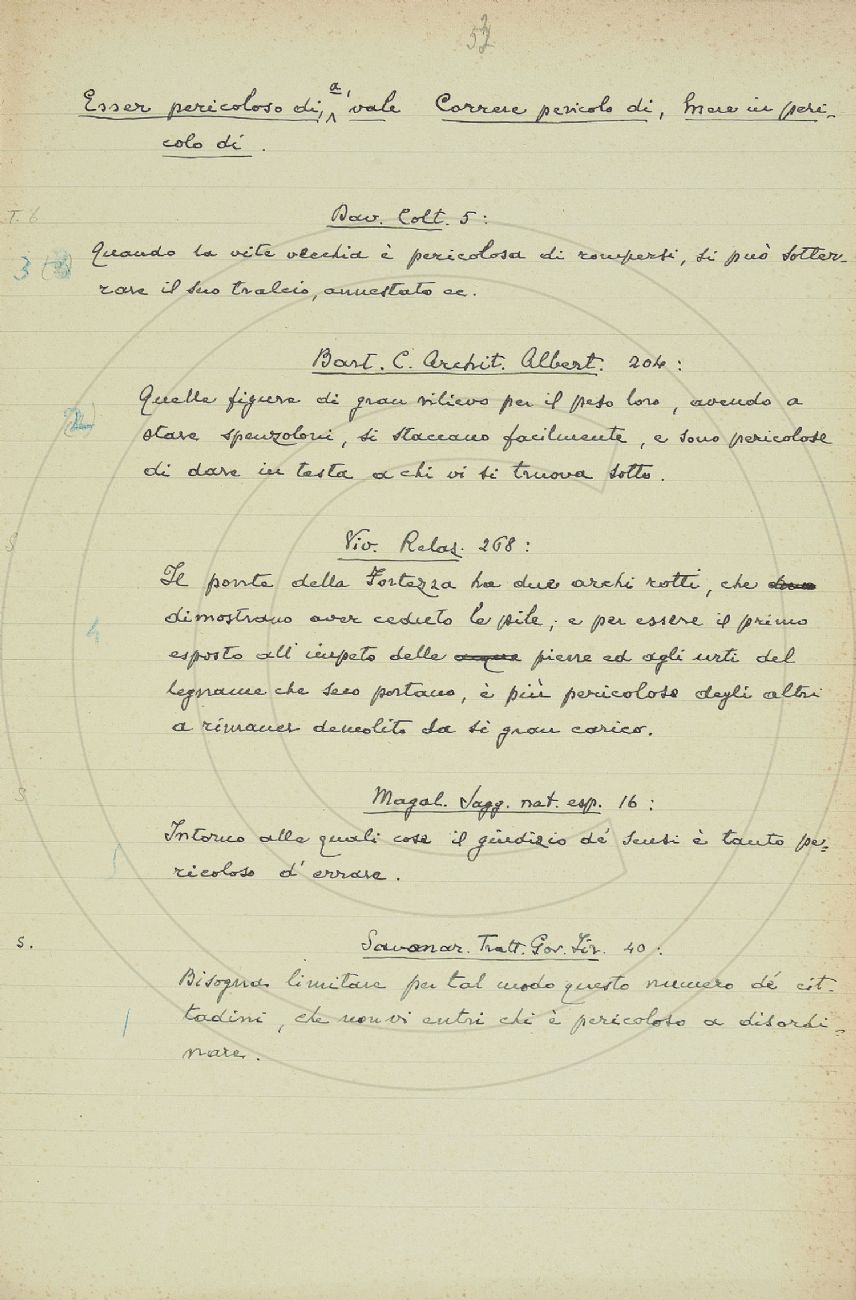 Esser pericoloso di, a, vale Correre pericolo di, Essere in peri-
colo di.
T. 6
Dav. Colt. 5:
3
Quando la vite vecchia è pericolosa di rompersi, si può sotter-
rare il suo tralcio, annestato ec.
Bart. C. Archit. Albert. 204:
Quelle figure di gran rilievo per il peso loro, avendo a
stare spenzoloni, si staccano facilmente, e sono pericolose
di dare in testa a chi vi si truova sotto.
S
Viv. Relaz. 268:
Il ponte della Fortezza ha due archi rotti, che
dimostrano aver ceduto le pile; e per essere il primo
4
esposto all'impeto delle acque pietre ed agli urti del
legname che seco portano, è più pericoloso degli altri
a rimaner demolito da sì gran carico.
S
Magal. Sagg. nat. esp. 16:
Intorno alle quali cose il giudizio de' sensi è tanto pe-
5
ricoloso d'errare.
S.
Savonar. Tratt. Gov. Fir. 40:
Bisogna limitare per tal modo questo numero de' cit-
1
tadini, che non vi entri chi è pericoloso a disordi-
nare.